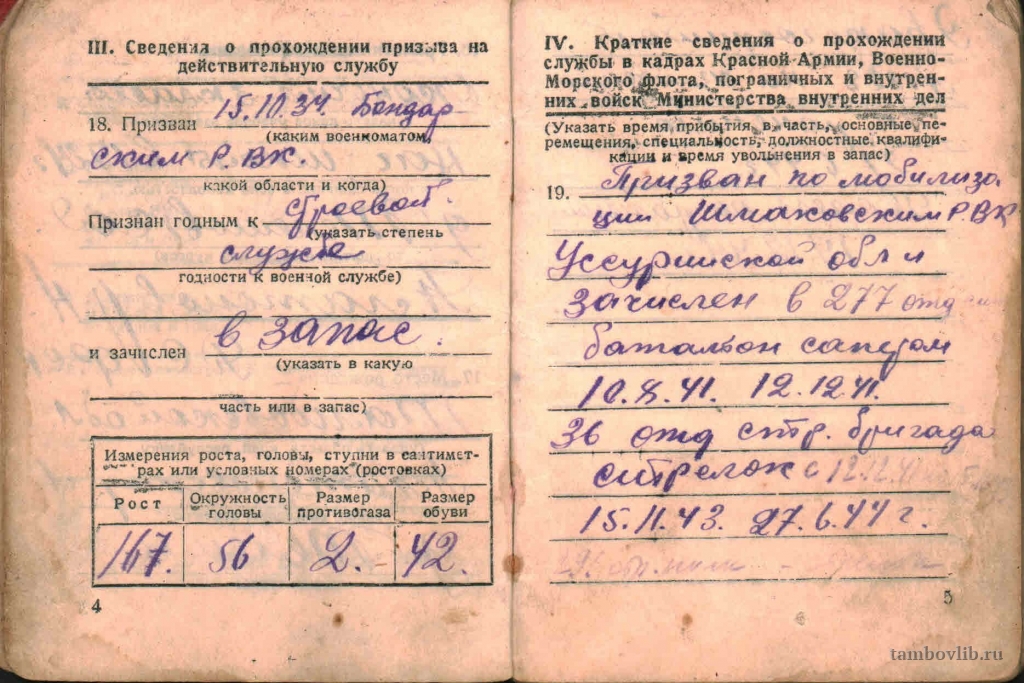 III. Сведения о прохождении призыва на
действительную службу
15.10.34 Бондар
18. Призван
(каким военкоматом,
ским Р. ВК.
какой области и когда)
Признан годным к строевой
(указать степень
службе
годности к военной службе)
и зачислен в запас.
(указать в какую
часть или в запас)
Измерения роста, головы, ступни в сантимет-
рах или условных номерах (ростовках)
Рост Окружность головы Размер противогаза Размер обуви
167. 56 2. 42.
4
IV. Краткие сведения о прохождении
службы в кадрах Красной Армии, Военно-
Морского флота, пограничных и внутрен-
них войск Министерства внутренних дел
(Указать время прибытия в часть, основные пе-
ремещения, специальность, должностные квалифи-
кации и время увольнения в запас)
19. Призван по мобилиза
ции Шмаковским Р. ВК
Уссурийской обл и
зачислен в 277 отд
батальон сапером
10.8.41. 12.12.41.
36 отд стр. бригада
стрелок с 12.12.41
15.11.43. 27.6.44 г.
5
tambovlib.ru